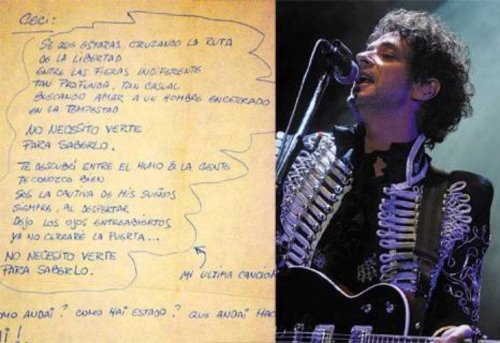 CECI:
SÉ QUE ESTARÁS CRUZANDO LA RUTA
DE LA LIBERTAD
ENTRE LAS FIERAS INDIFERENTE
TAN PROFUNDA, TAN CASUAL
BUSCANDO AMAR A UN HOMBRE ENCERRADO
EN LA TEMPESTAD
NO NECESITO VERTE
PARA SABERLO.
TE DESCUBRÍ ENTRE EL HUMO & LA GENTE
TE CONOZCO BIEN
SOS LA CAUTIVA DE MIS SUEÑOS
SIEMPRE, AL DESPERTAR
DEJO LOS OJOS ENTREABIERTOS
YA NO CERRARÉ LA PUERTA...
NO NECESITO VERTE
PARA SABERLO.
MI ULTIMA CANCION
OMO ANDAI? COMO HAI ESTADO? QUE ANDAI HAC